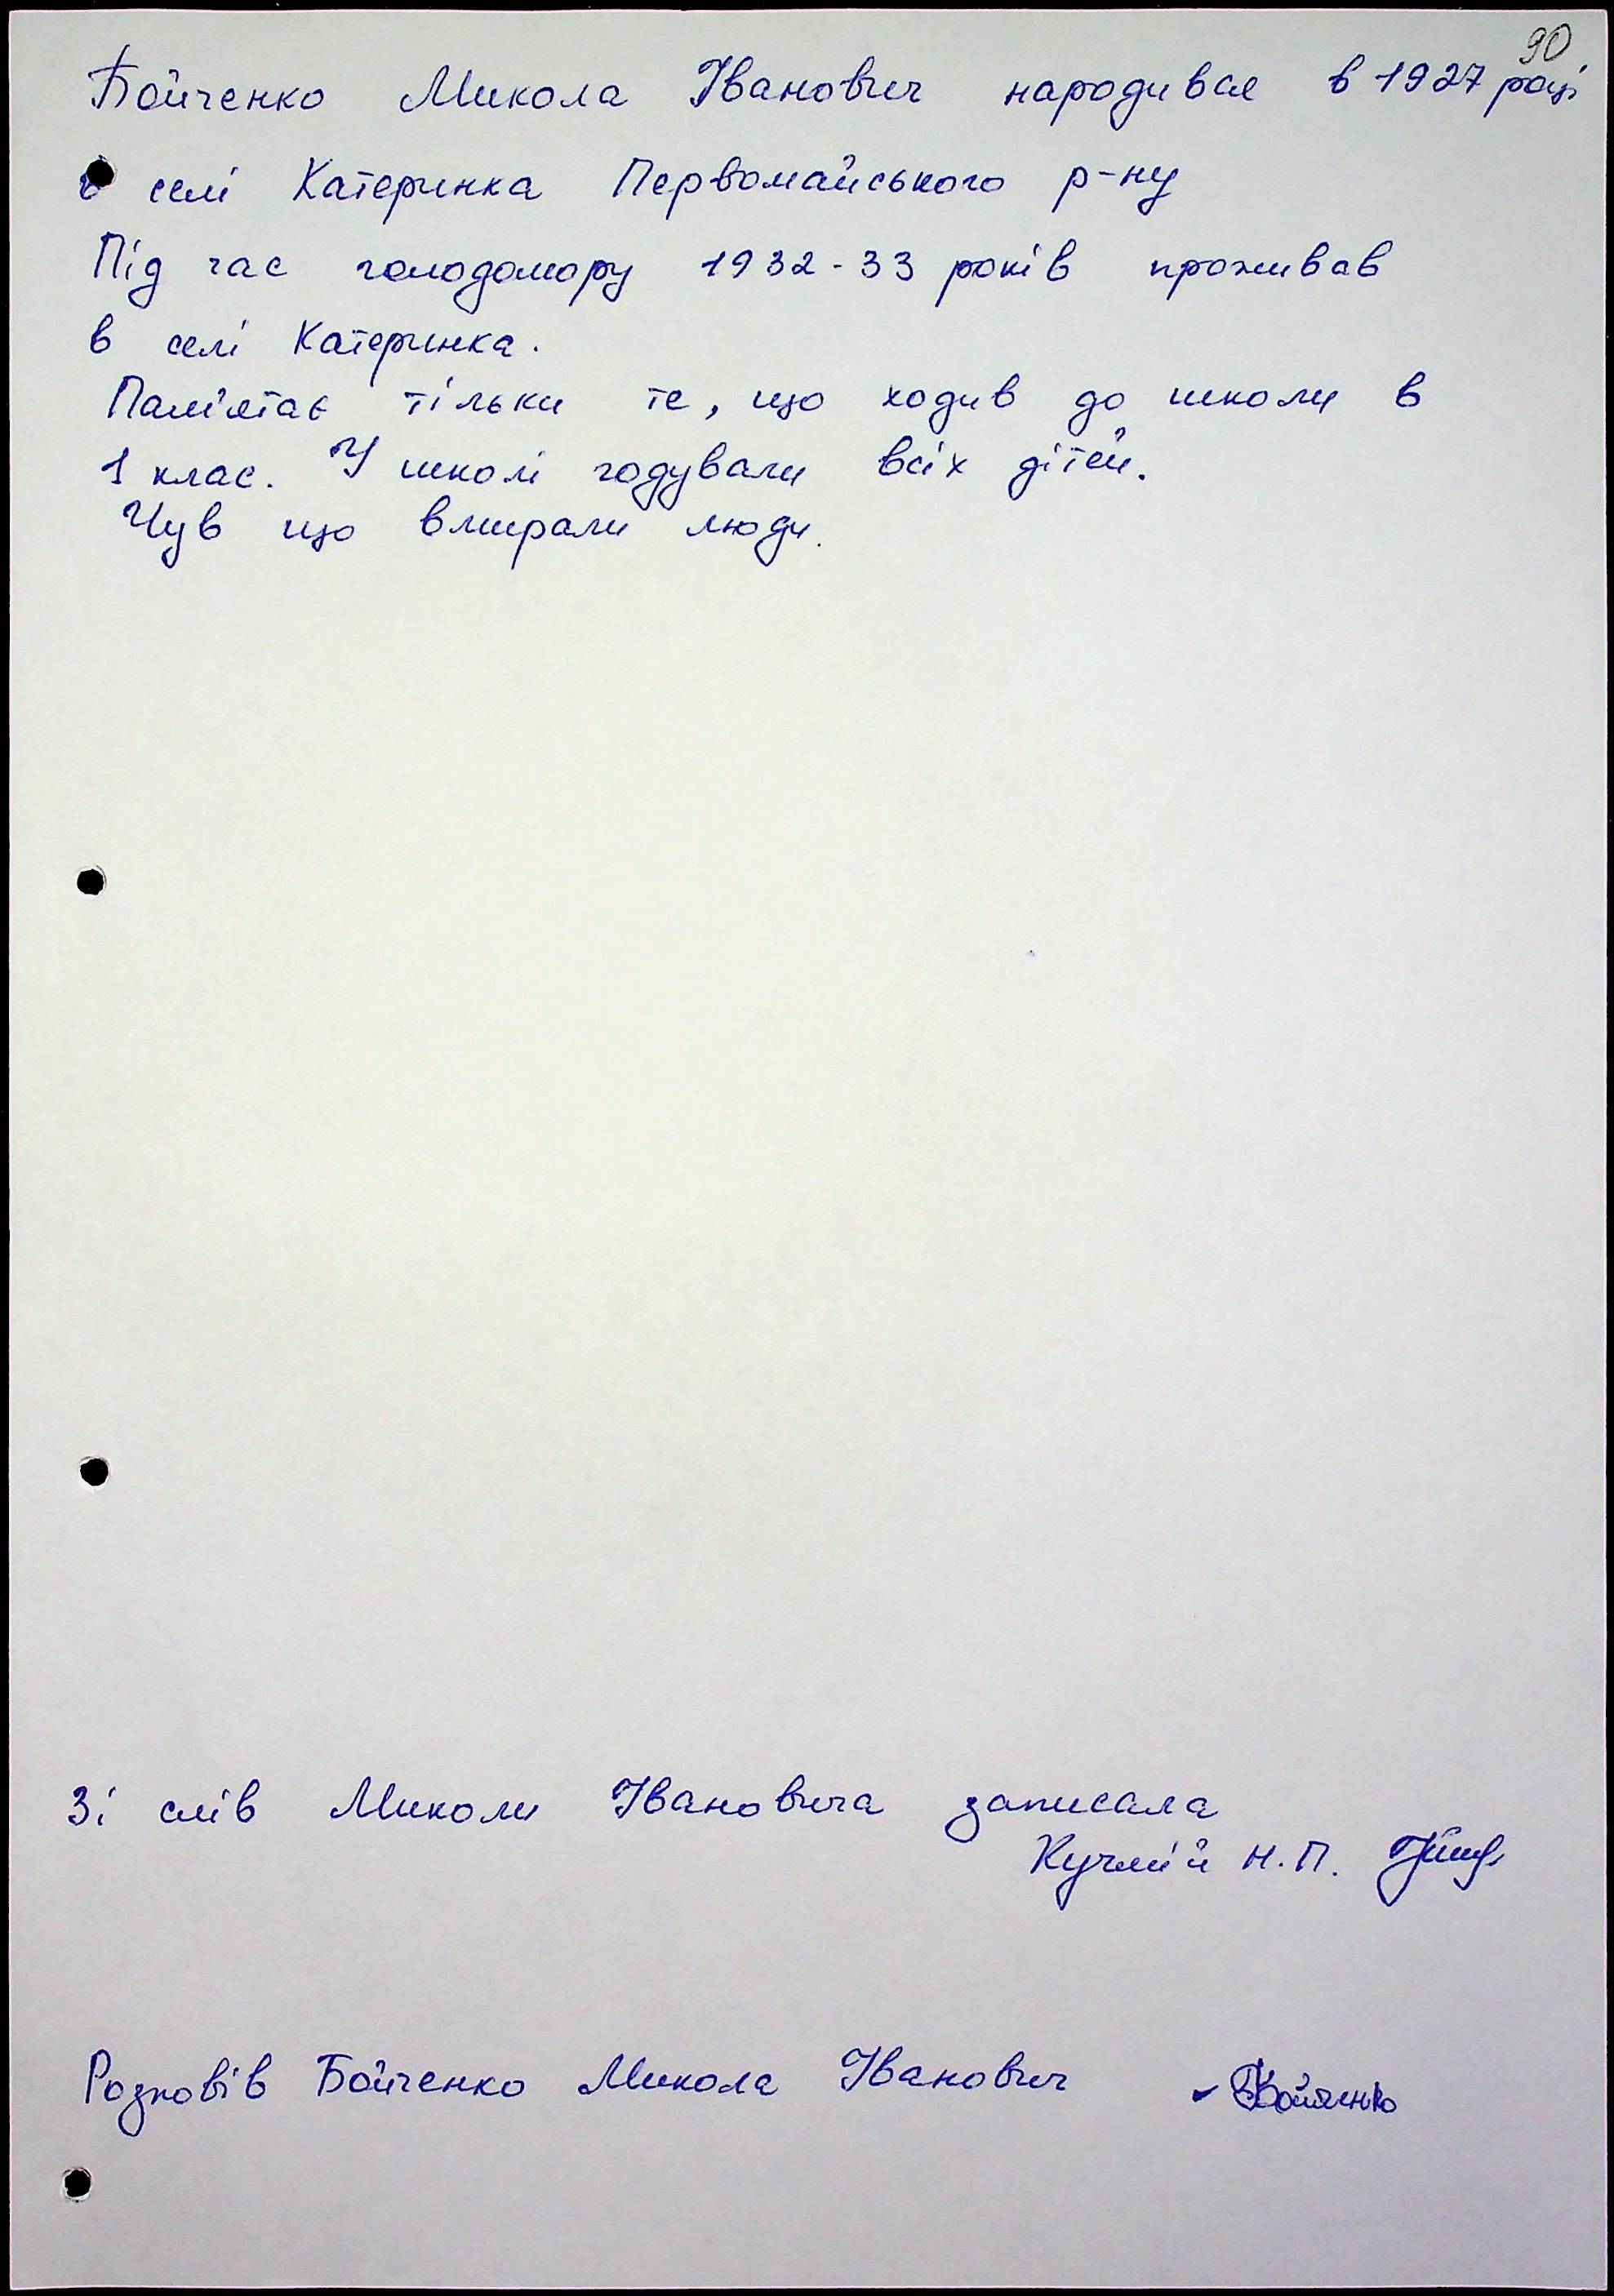 90
Бойченко Микола Іванович народився в 1927 році
в селі Катеринка Первомайського р-ну
Під час голодомору 1932-33 років проживав
в селі Катеринка.
Пам'ятає тільки те, що ходив до школи в
1 клас. У школі годували всіх дітей.
Чув що вмирали люди.
Зі слів Миколи Івановича записала
Кучмій Н.П.
Розповів Бойченко Микола Іванович Бойченко